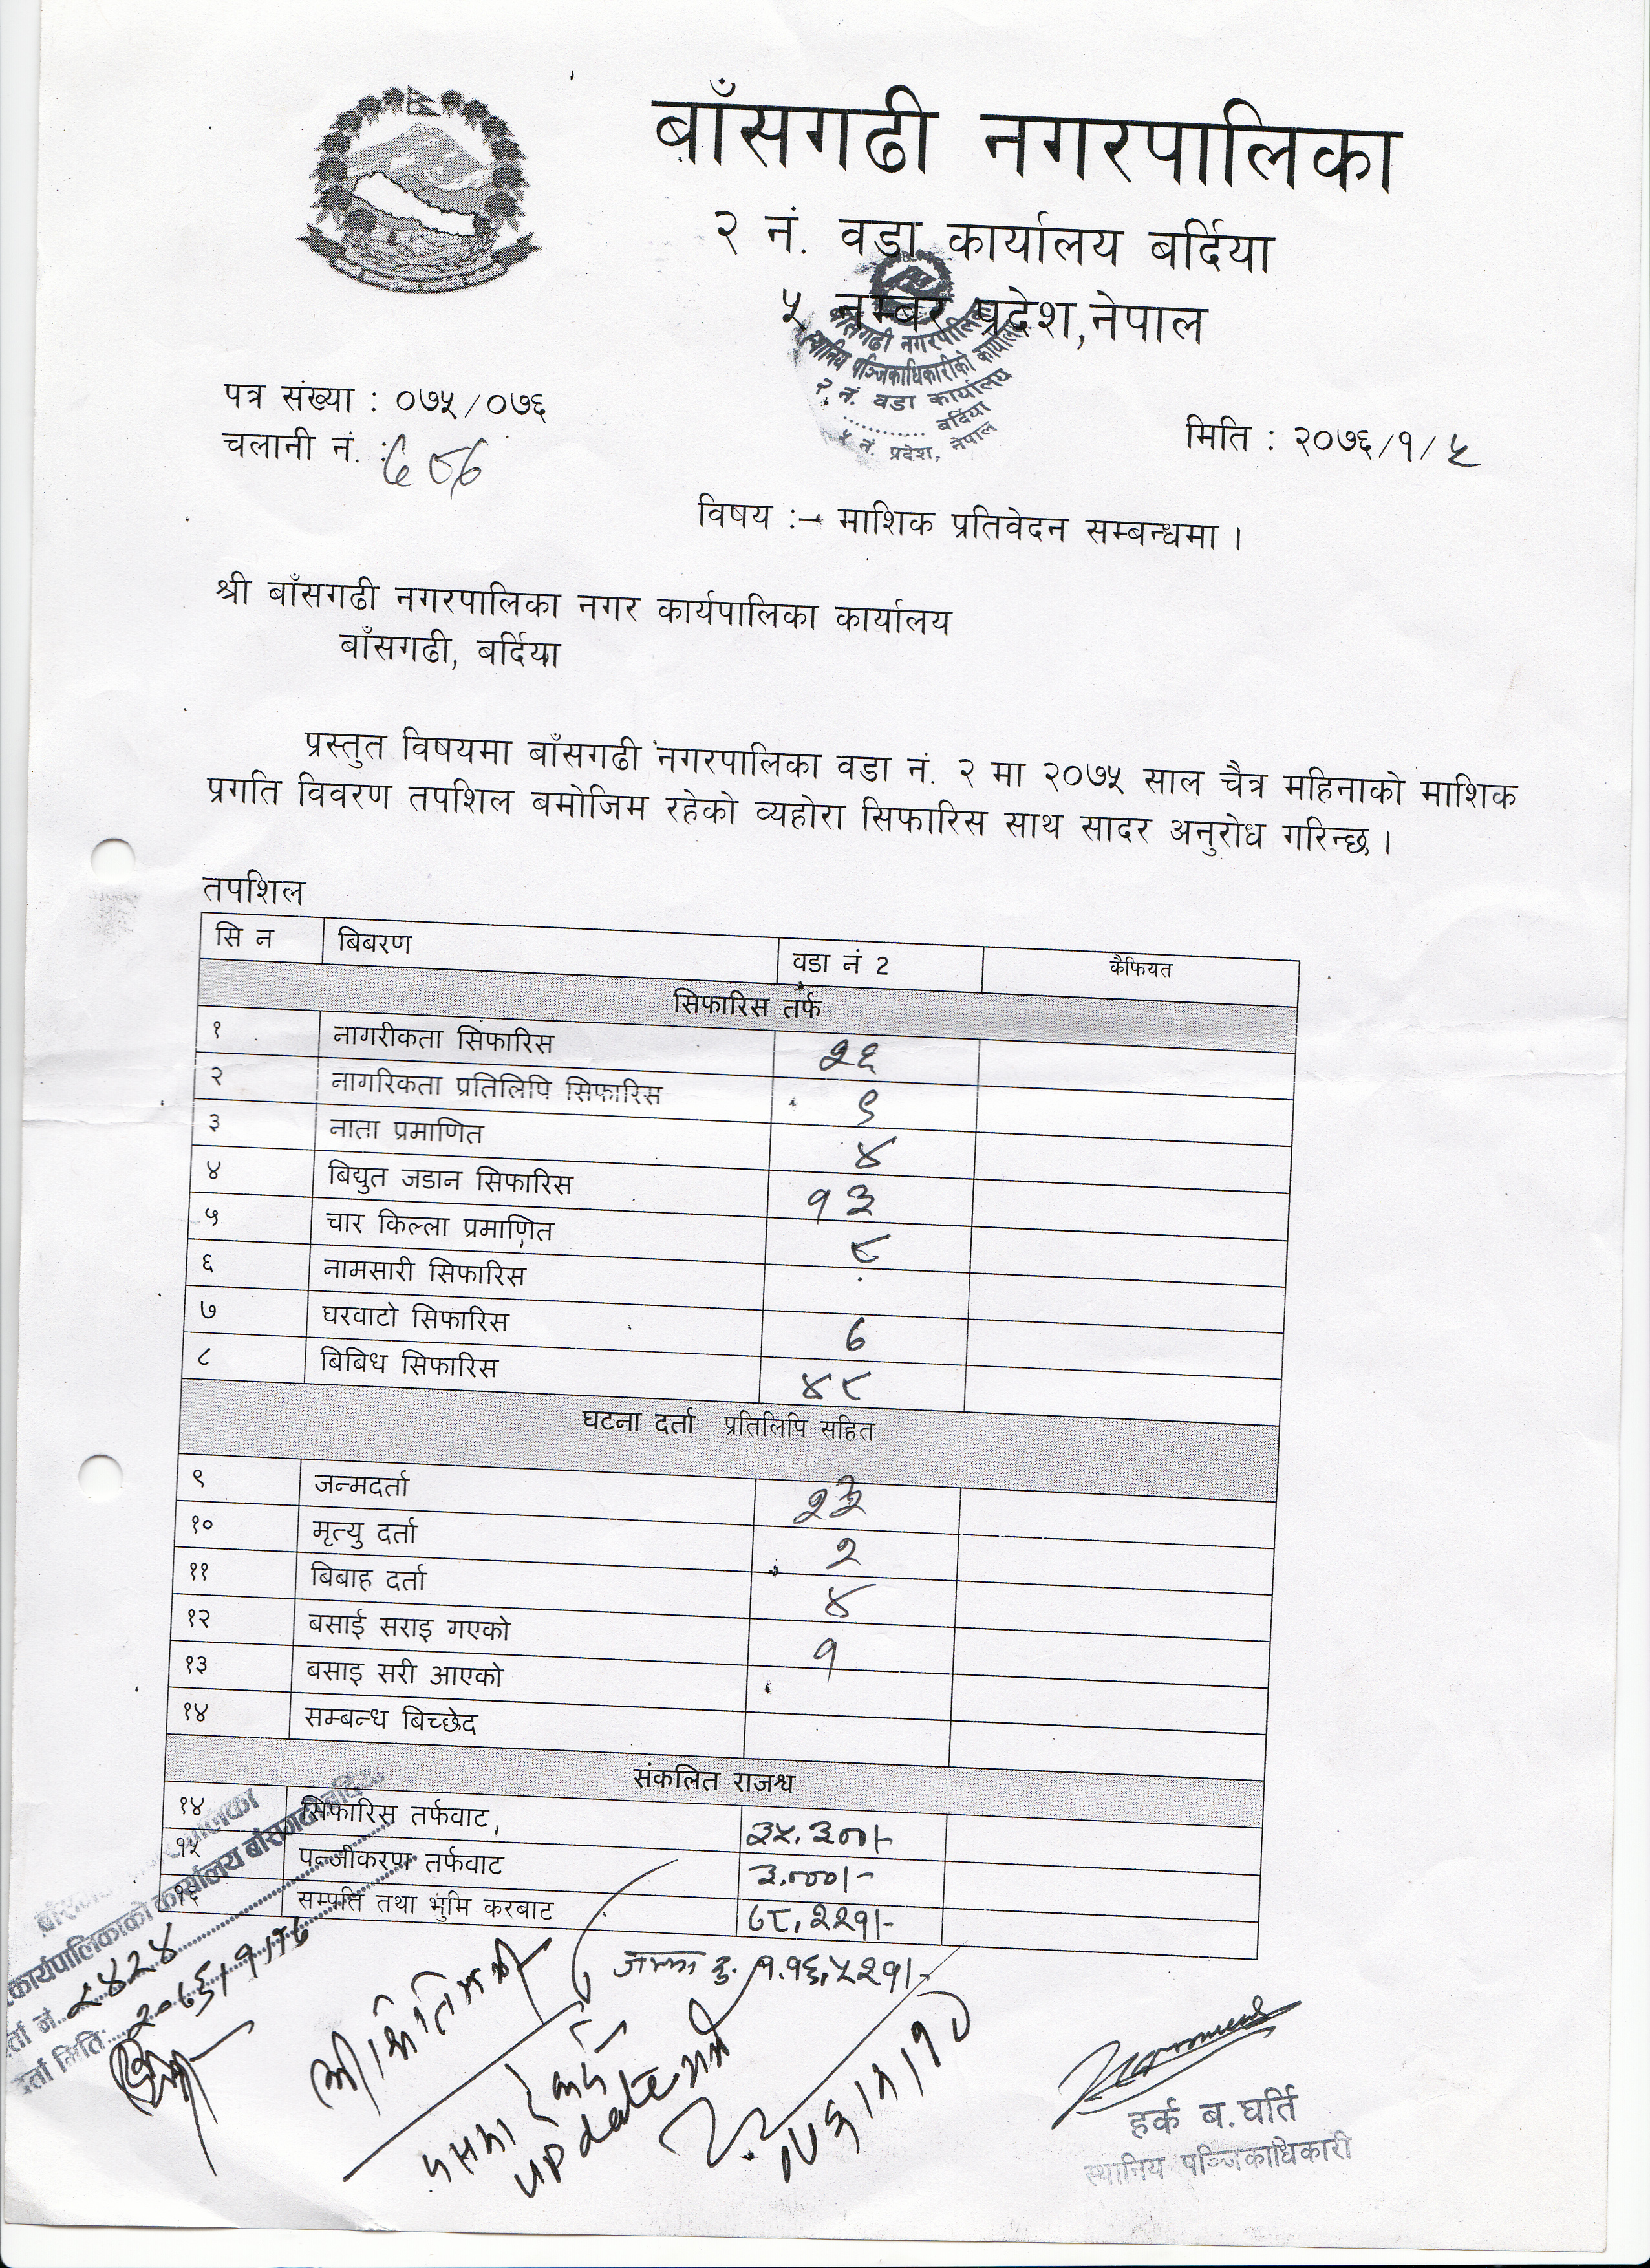 बाँसगढी नगरपालिका
२ नं. वडा कार्यालय बर्दिया
५ नम्बर प्रदेश,नेपाल
बाँसगढी नगरपालिका
स्थानिय पञ्जिकाधिकारीको कार्यालय
२ नं. वडा कार्यालय
बर्दिया
५ नं. प्रदेश, नेपाल
पत्र संख्या : ०७५/०७६
चलानी नं. :
मिति : २०७६/१/५
विषय :- माशिक प्रतिवेदन सम्बन्धमा ।
श्री बाँसगढी नगरपालिका नगर कार्यपालिका कार्यालय
बाँसगढी, बर्दिया
प्रस्तुत विषयमा बाँसगढी नगरपालिका वडा नं. २ मा २०७५ साल चैत्र महिनाको माशिक
प्रगति विवरण तपशिल बमोजिम रहेको व्यहोरा सिफारिस साथ सादर अनुरोध गरिन्छ ।
तपशिल
सि न बिबरण वडा नं 2 कैफियत
सिफारिस तर्फ
१ नागरीकता सिफारिस २६
२ नागरिकता प्रतिलिपि सिफारिस ९
३ नाता प्रमाणित ४
४ बिद्युत जडान सिफारिस १३
५ चार किल्ला प्रमाणित ८
६ नामसारी सिफारिस
७ घरवाटो सिफारिस ७
८ बिबिध सिफारिस ४८
घटना दर्ता प्रतिलिपि सहित
९ जन्मदर्ता २३
१० मृत्यु दर्ता २
११ बिबाह दर्ता ४
१२ बसाई सराइ गएको १
१३ बसाइ सरी आएको
१४ सम्बन्ध बिच्छेद
संकलित राजश्व
१४ सिफारिस तर्फवाट, ३५,३००।-
१५ पन्जीकरण तर्फवाट ३,०००।-
१६ सम्पति तथा भुमि करबाट ७८,२२१।-
जम्मा रु. १,१६,५२१।-
कार्यपालिकाको कार्यालय बाँसगढी बर्दिया
दर्ता नं. २४२४
दर्ता मिति:
update गर्ने
हर्क ब.घर्ति
स्थानिय पञ्जिकाधिकारी